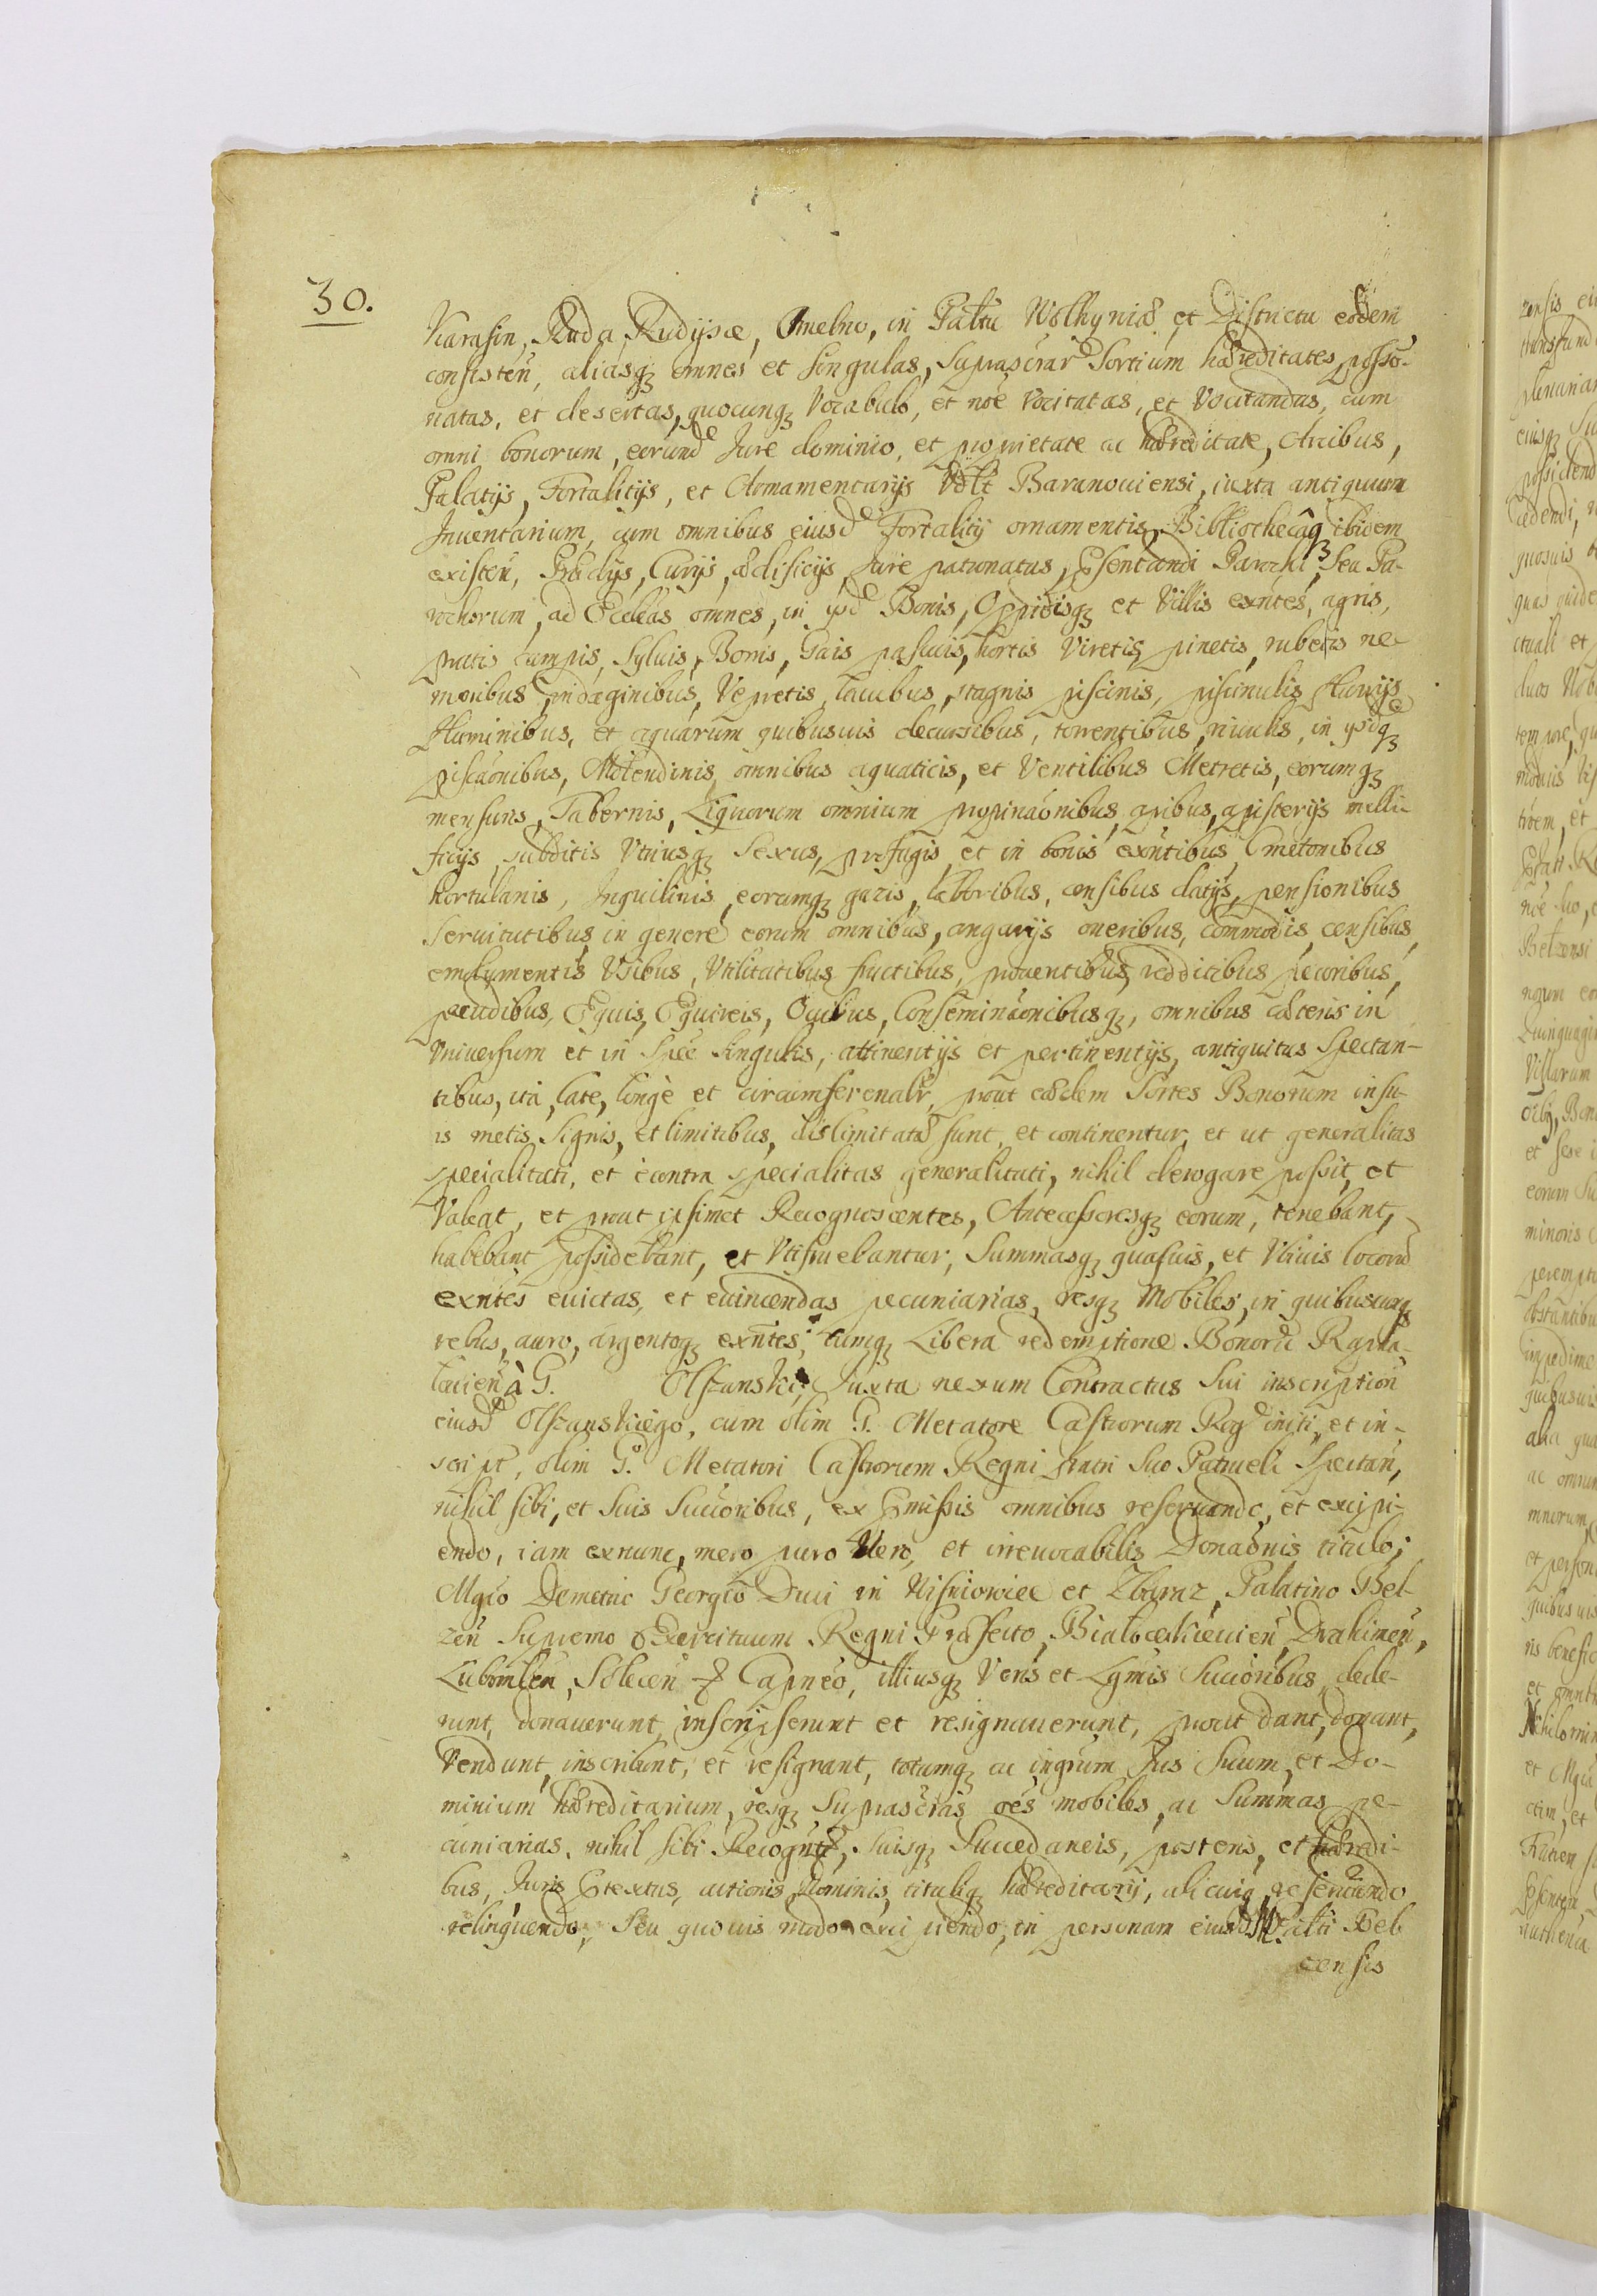 30.
Karasin, Ruda, Rudyscæ, Omelno, in Paltu Wolhyniæ et Districtu eodem
consisteñ, aliasq; omnes et singulas, Suprascrar Sortium hæreditates, posso-
natas, et desertas, quocunq; Vocabulo, et nõe Vocitatas, et Vocitandas, cum
omni bonorum, eorund Jure dominio, et proprietate ac hæreditate, Arcibus,
Palatijs, Fortalitijs, et Armamentarijs Vdlt Baranoviensi, iuxta antiquum
Inventarium, cum omnibus eiusd Fortalitij ornamentis, Bibliothecâq ibidem
existeñ, Prædijs, Curijs, ædificijs, Jure patronatus, Psentandi Parochi, Seu Pa-
rochorum, ad Eccleas omnes, in psd Bonis, Oppidisq; et Villis exntes, agris,
pratis campis, Syluis, Borris, Gais pascuis, hortis Viretis, pinetis, rubetis ne-
moribus, indaginibus, Vepretis, lacubus, stagnis piscinis, piscinulis fluvijs
Fluminibus, et aquarum quibusuis decursibus, torrentibus, riuulis, in psdq;
piscãonibus, Molendinis omnibus aquaticis, et Ventilibus Metretis, eorumq;
mensuris, Tabernis, Liquorum omnium propinãonibus, apibus, apisterijs melli-
ficijs, subditis Vtriusq; Sexus, profugis et in bonis exntibus Cmetonibus
hortulanis, Inquilinis, eorumq; gazis, laboribus, censibus datijs, pensionibus
Seruitutibus in genere eorum omnibus, angarijs oneribus, Commodis, censibus,
emolumentis Vsibus, Vtilitatibus fructibus, prouentibus, redditibus pecoribus,
pecudibus, Equis, Equireis, Ouibus, Conseminãonibusq;, omnibus cæteris in
Vniuersum et in Spẽe Singulis, attinentijs et pertinentijs, antiquitus Spectan-
tibus, ita, late, longè et circumferenalr, prout eædem Sortes Bonorum in su-
is metis, Signis, et limitibus, dislimitatæ sunt, et continentur, et ut generalitas
specialitati, et è contra specialitas generalitati, nihil derogare possit, et
Valeat, et prout ipsimet Recognoscentes, Antecessoresq; eorum, tenebant,
habebant possidebant, et Vtifruebantur, Summasq; quasuis, et Vbiuis locorũ
exntes euictas, et euincendas pecuniarias, resq; Mobiles, in quibuscunq
rebus, auro, argentoq; exntes, cumq; Libera redemptione Bonorũ Rapha-
louieñ à G. Olszanski, Juxta nexum Contractus Sui inscription
eiusd Olszanskiego, cum olim G. Metatore Castrorum Reg initi, et in-
script, olim G. Metatori Castrorum Regni fratri Suo Patrueli Spectañ,
nihil sibi, et Suis Succoribus, ex Pmissis omnibus reseruando, et excipi-
endo, iam exnunc, mero puro Vero, et irreuocabilis Donãonis titulo,
Mgco Demetrio Georgio Duci in Wisniowiec et Zbaraz, Palatino Bel-
zeñ Supremo Exercituum Regni Præfecto, Bialocerkieuieñ, Drahimeñ,
Lubomleñ, Soleceñ & Capneo, illiusq; Veris et Lgmis Succoribus, dede-
runt, donauerunt, inscripserunt et resignauerunt, prout dant, donant,
Vendunt, inscribunt, et resignant, totumq; ac ingrum Jus Suum, et Do-
minium hæreditarium, resq; Suprascrãs oẽs mobiles, ac Summas pe-
cuniarias, nihil sibi Recogntes, Suisq; Succedaneis, posteris, et hæredi-
bus, Juris Ptextus, actionis, Dominis, tituliq; hæreditarij, alicuiq reseruando
relinquendo, Seu quouis modo excipiendo, in personam eiusd M. Palti Bel
censis